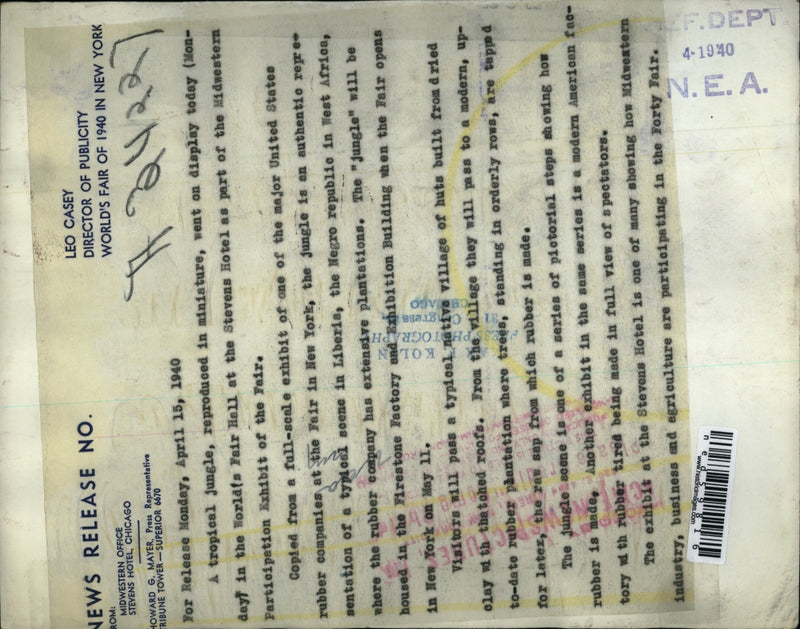 NEWS RELEASE NO.
FROM:
MIDWESTERN OFFICE
STEVENS HOTEL, CHICAGO
HOWARD G. MAYER, Press Representative
TRIBUNE TOWER—SUPERIOR 6670
LEO CASEY
DIRECTOR OF PUBLICITY
WORLD'S FAIR OF 1940 IN NEW YORK
For Release Monday, April 15, 1940
A tropical jungle, reproduced in miniature, went on display today (Mon-
day) in the World's Fair Hall at the Stevens Hotel as part of the Midwestern
Participation Exhibit of the Fair.
Copied from a full-scale exhibit of one of the major United States
rubber companies at the Fair in New York, the jungle is an authentic repre-
sentation of a typical scene in Liberia, the Negro republic in West Africa,
where the rubber company has extensive plantations. The "jungle" will be
housed in the Firestone Factory and Exhibition Building when the Fair opens
in New York on May 11.
Visitors will pass a typical native village of huts built from dried
clay with thatched roofs. From the village they will pass to a modern, up-
to-date rubber plantation where trees, standing in orderly rows, are tapped
for later, the raw sap from which rubber is made.
The jungle scene is one of a series of pictorial steps showing how
rubber is made. Another exhibit in the same series is a modern American fac-
tory with rubber tires being made in full view of spectators.
The exhibit at the Stevens Hotel is one of many showing how Midwestern
industry, business and agriculture are participating in the Forty Fair.
REF. DEPT.
4-1940
N. E. A.
CHICAGO
ned59816